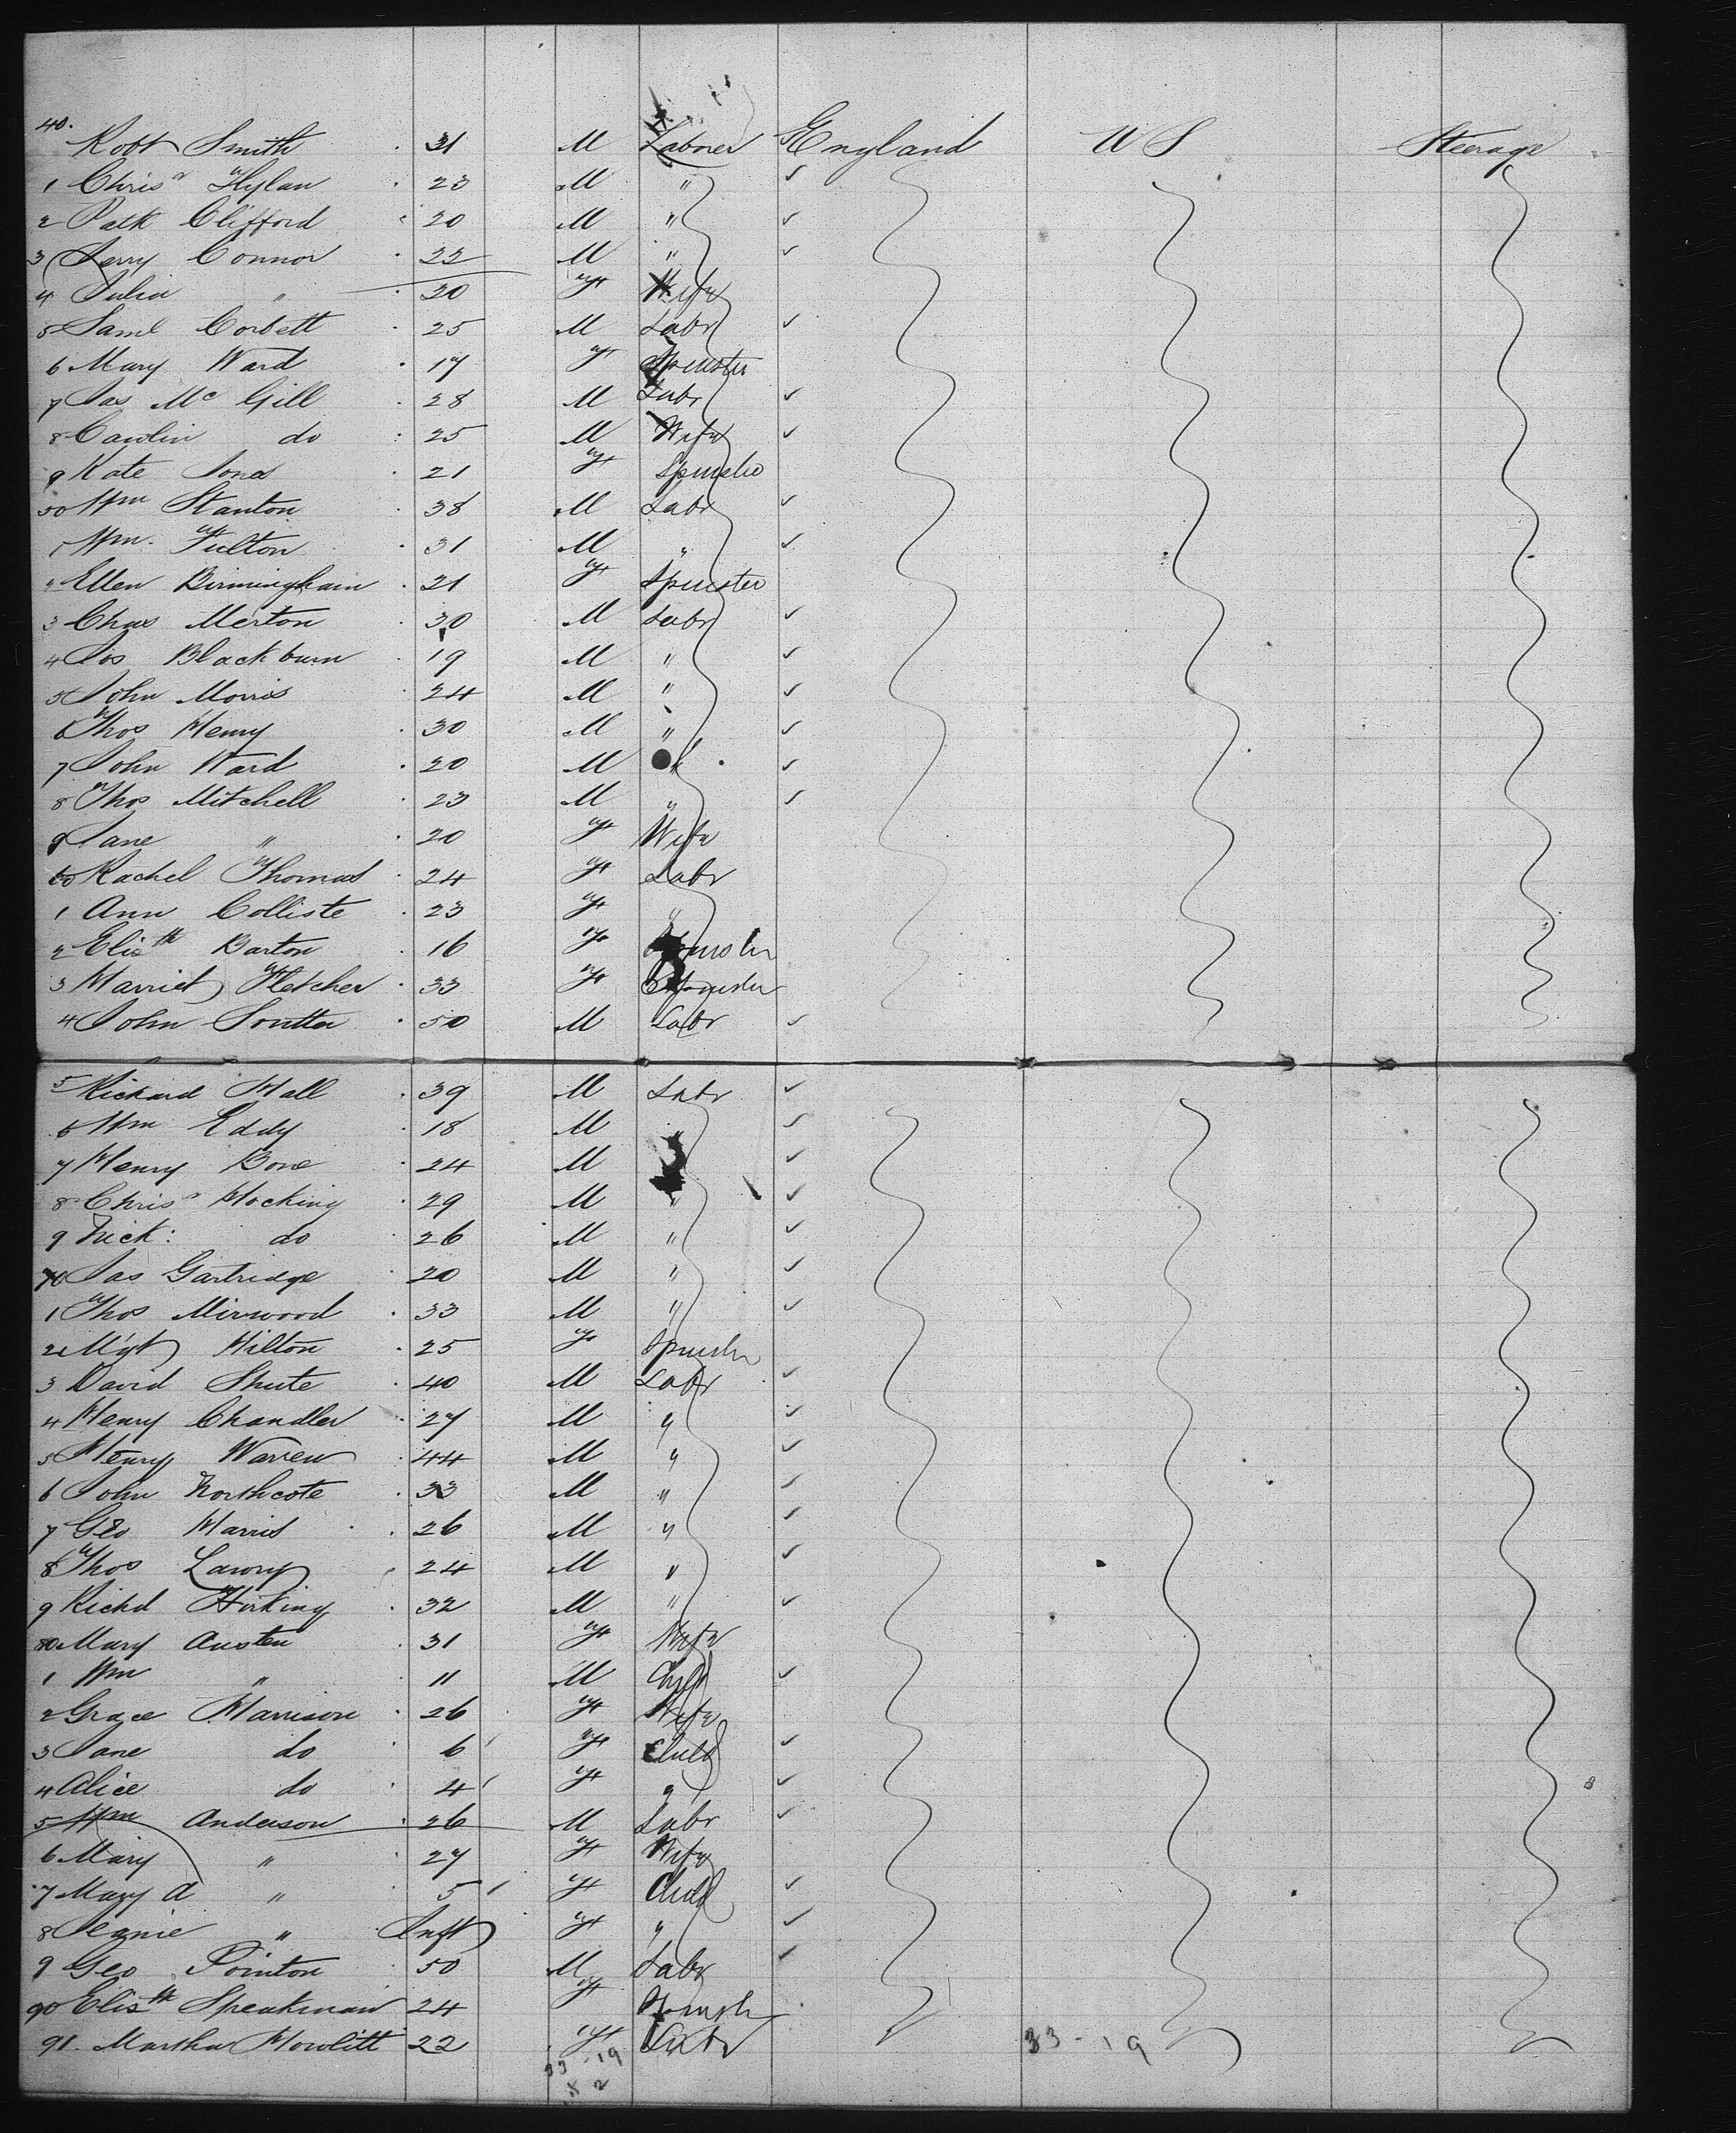 40. Robt Smith 31 M Laborer England U S Steerage
1 Chrisr Hylan 23 M "
2 Patk Clifford 20 M "
3 Jerry Connor 22 M "
4 Julia " 20 F Wife
5 Saml Corbett 25 M Labr
6 Mary Ward 17 F Spinster
7 Jas McGill 28 M Labr
8 Carolin do 25 M Wife
9 Kate Jones 21 F Spinster
50 Wm Stanton 38 M Labr
1 Wm. Fulton 31 M "
2 Ellen Birmingham 21 F Spinster
3 Chas Merton 30 M Labr
4 Jos Blackburn 19 M "
5 John Morris 24 M "
6 Thos Henry 30 M "
7 John Ward 20 M
8 Thos Mitchell 23 M "
9 Jane " 20 F Wife
60 Rachel Thomas 24 F Labr
1 Ann Colliste 23 F "
2 Elisth Barton 16 F Spinster
3 Harriet Fletcher 33 F Spinster
4 John Soutter 50 M Labr
5 Richard Hall 39 M Labr
6 Wm Eddy 18 M "
7 Henry Bone 24 M
8 Chrisr Hocking 29 M "
9 Nick: do 26 M "
70 Jas Gartridge 20 M "
1 Thos Mirwood 33 M "
2 Mgt Hilton 25 F Spinster
3 David Shute 40 M Labr
4 Henry Chandler 27 M "
5 Henry Warren 44 M "
6 John Northcote 33 M "
7 Geo Harris 26 M "
8 Thos Lawry 24 M "
9 Richd Hocking 32 M "
80 Mary Austen 31 F Wife
1 Wm " 11 M Child
2 Grace Harrison 26 F Wife
3 Jane do 6 F Child
4 Alice do 4 F "
5 Wm Anderson 26 M Labr
6 Mary " 27 F Wife
7 Mary A " 5 F Child
8 Jeanie " Inft F "
9 Geo Pointon 50 M Labr
90 Elisth Speakman 24 F Spinster
91. Martha Howlitt 22 F Labr
33 - 19 33 - 19
2